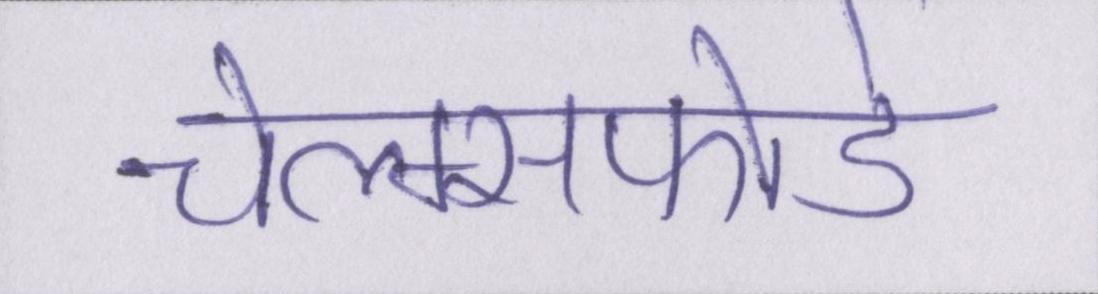 चेल्म्सफोर्ड